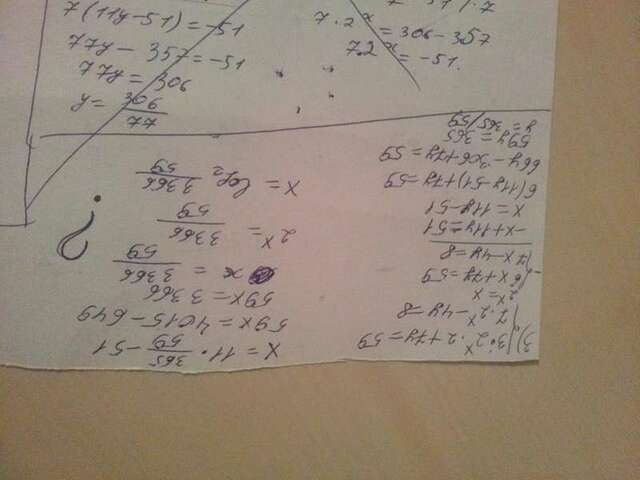 7(11y-51)=-51
77y-357=-51
77y=306
y=306/77
7·2ˣ=306-357
72ˣ=-51.
3) 3·2ˣ·2+7y=59
7·2ˣ-4y=8
2ˣ=x
6x+7y=59
7x-4y=8
-x+11y=51
x=11y-51
6(11y-51)+7y=59
66y-306+7y=59
59y=365
y=365/59
x=11·365/59-51
59x=4015-649
59x=3366
x=3366/59
2ˣ=3366/59
x=log₂ 3366/59
?